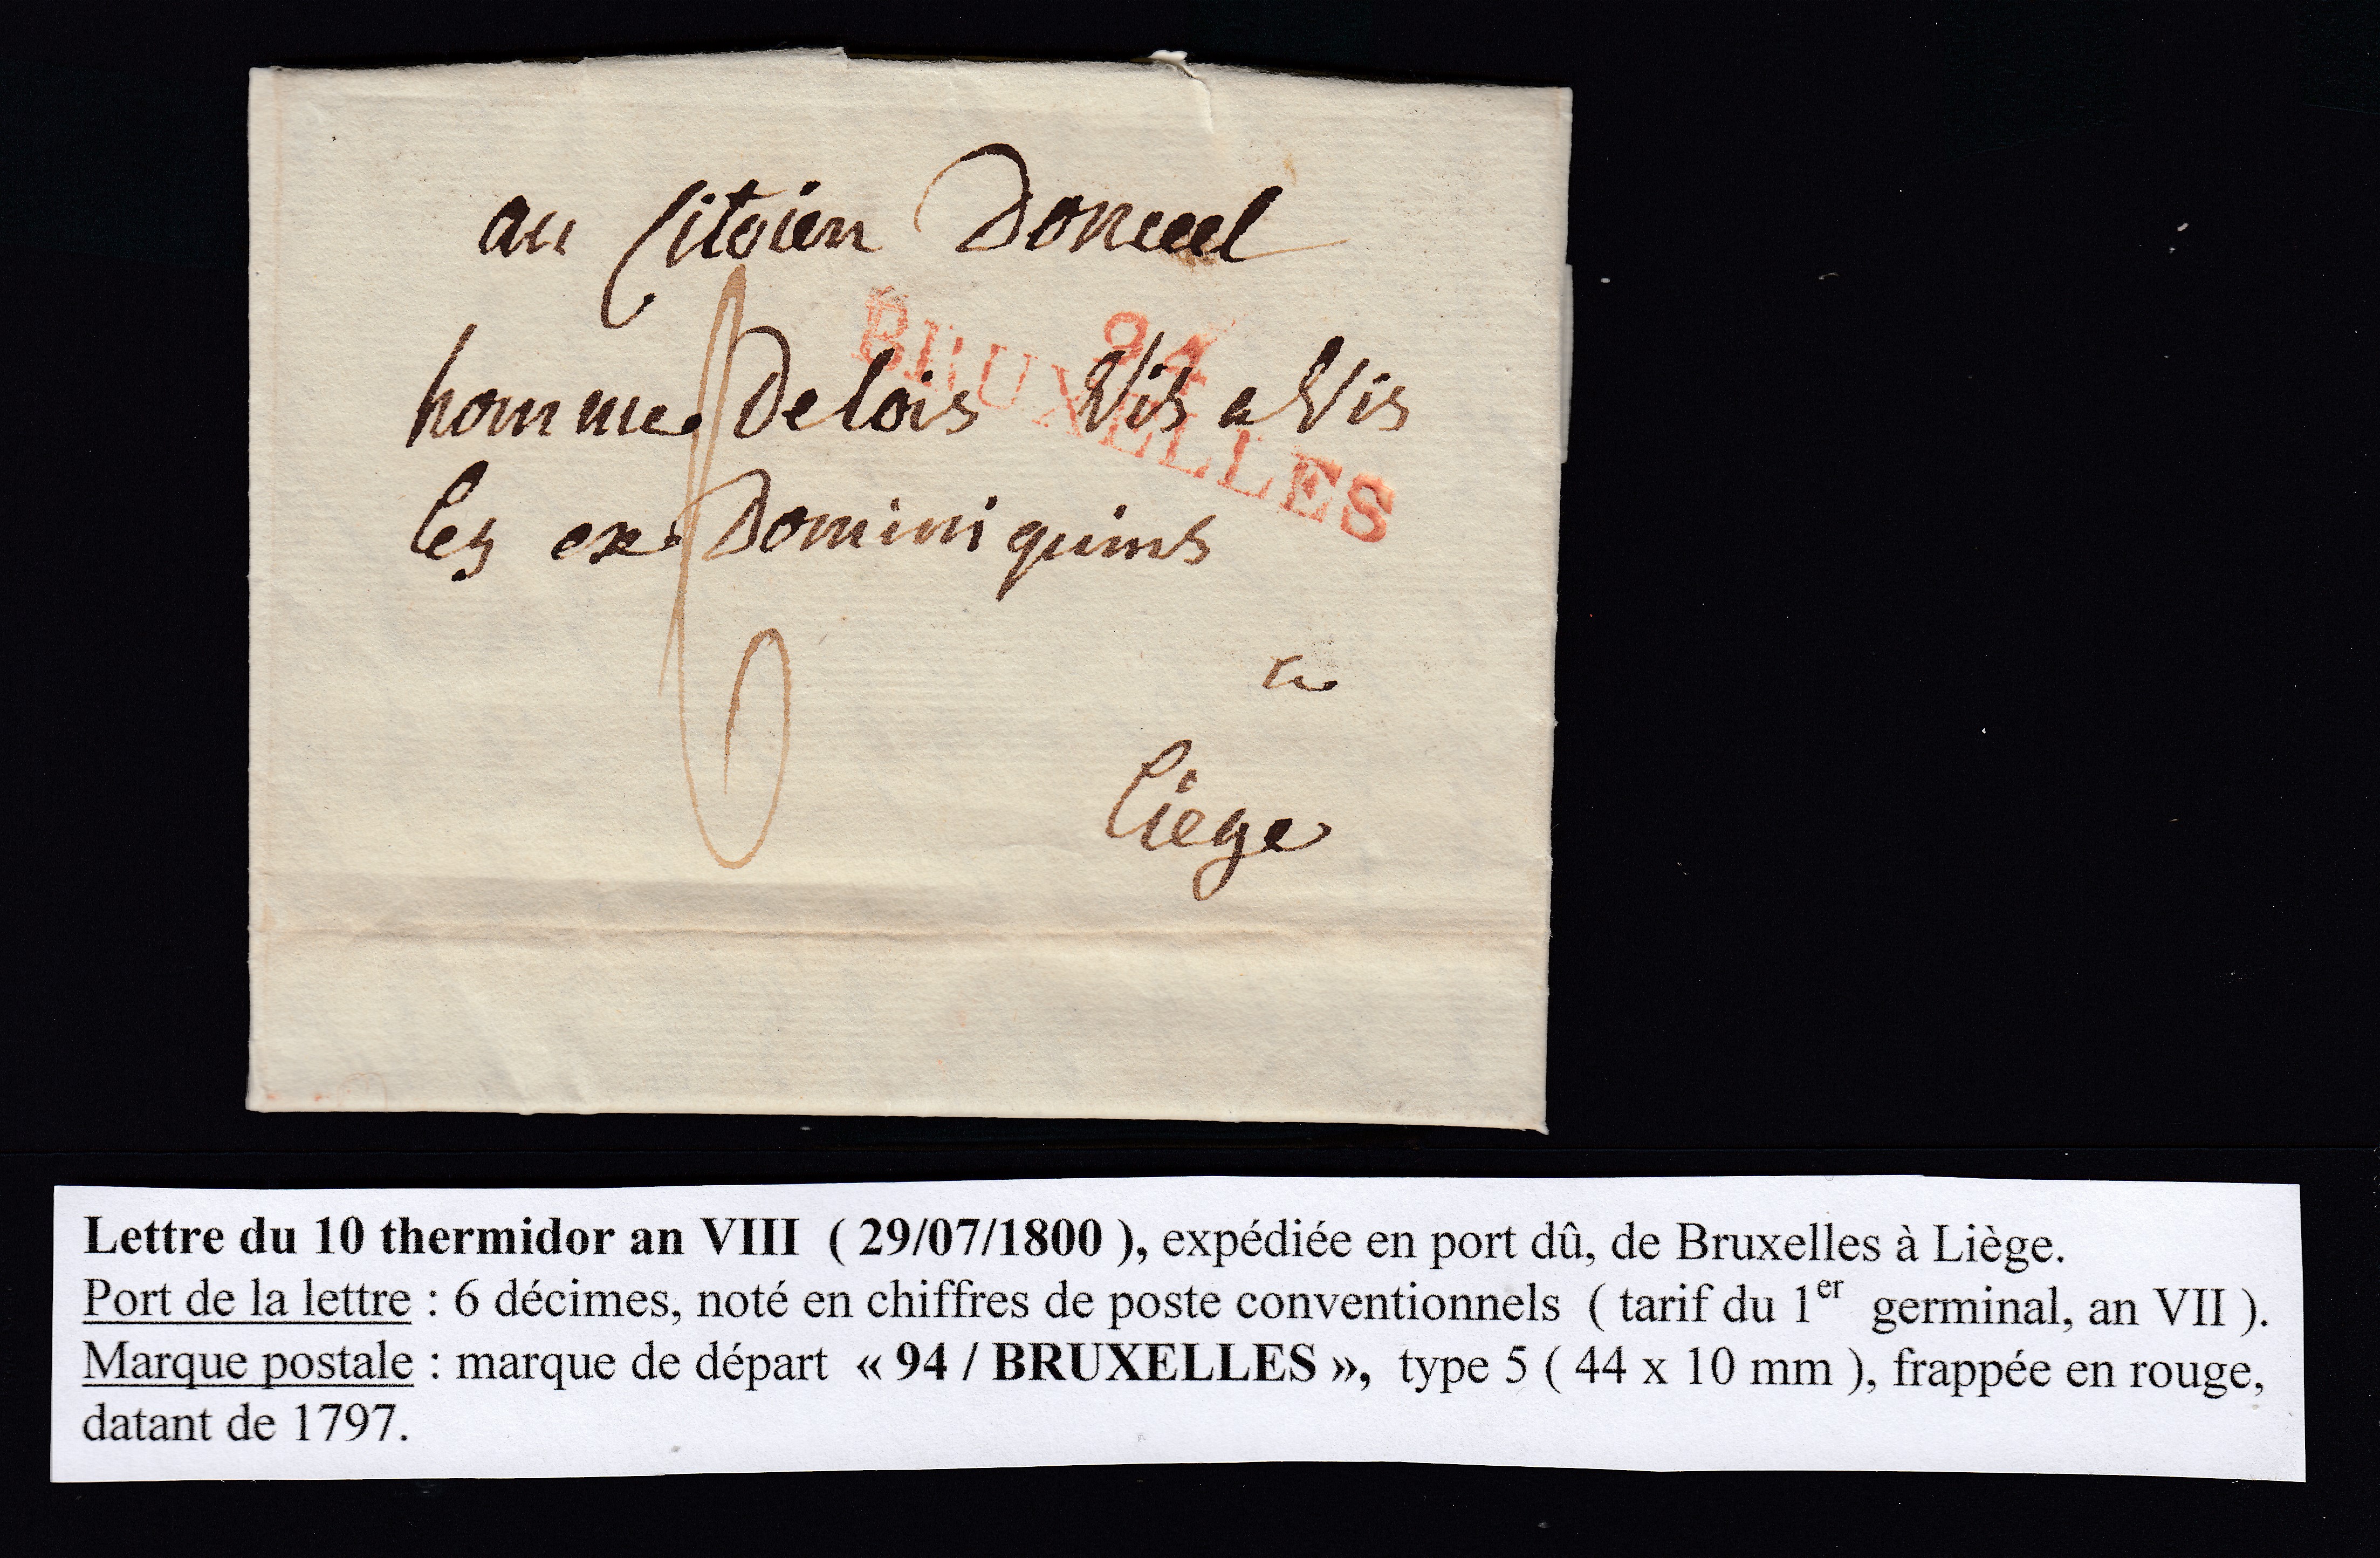 au Citoien Donceel
94
BRUXELLES
homme De lois Vis a Vis
les ex Dominiquins
6
a
Liege
Lettre du 10 thermidor an VIII ( 29/07/1800 ), expédiée en port dû, de Bruxelles à Liège.
Port de la lettre : 6 décimes, noté en chiffres de poste conventionnels ( tarif du 1er germinal, an VII ).
Marque postale : marque de départ « 94 / BRUXELLES », type 5 ( 44 x 10 mm ), frappée en rouge,
datant de 1797.